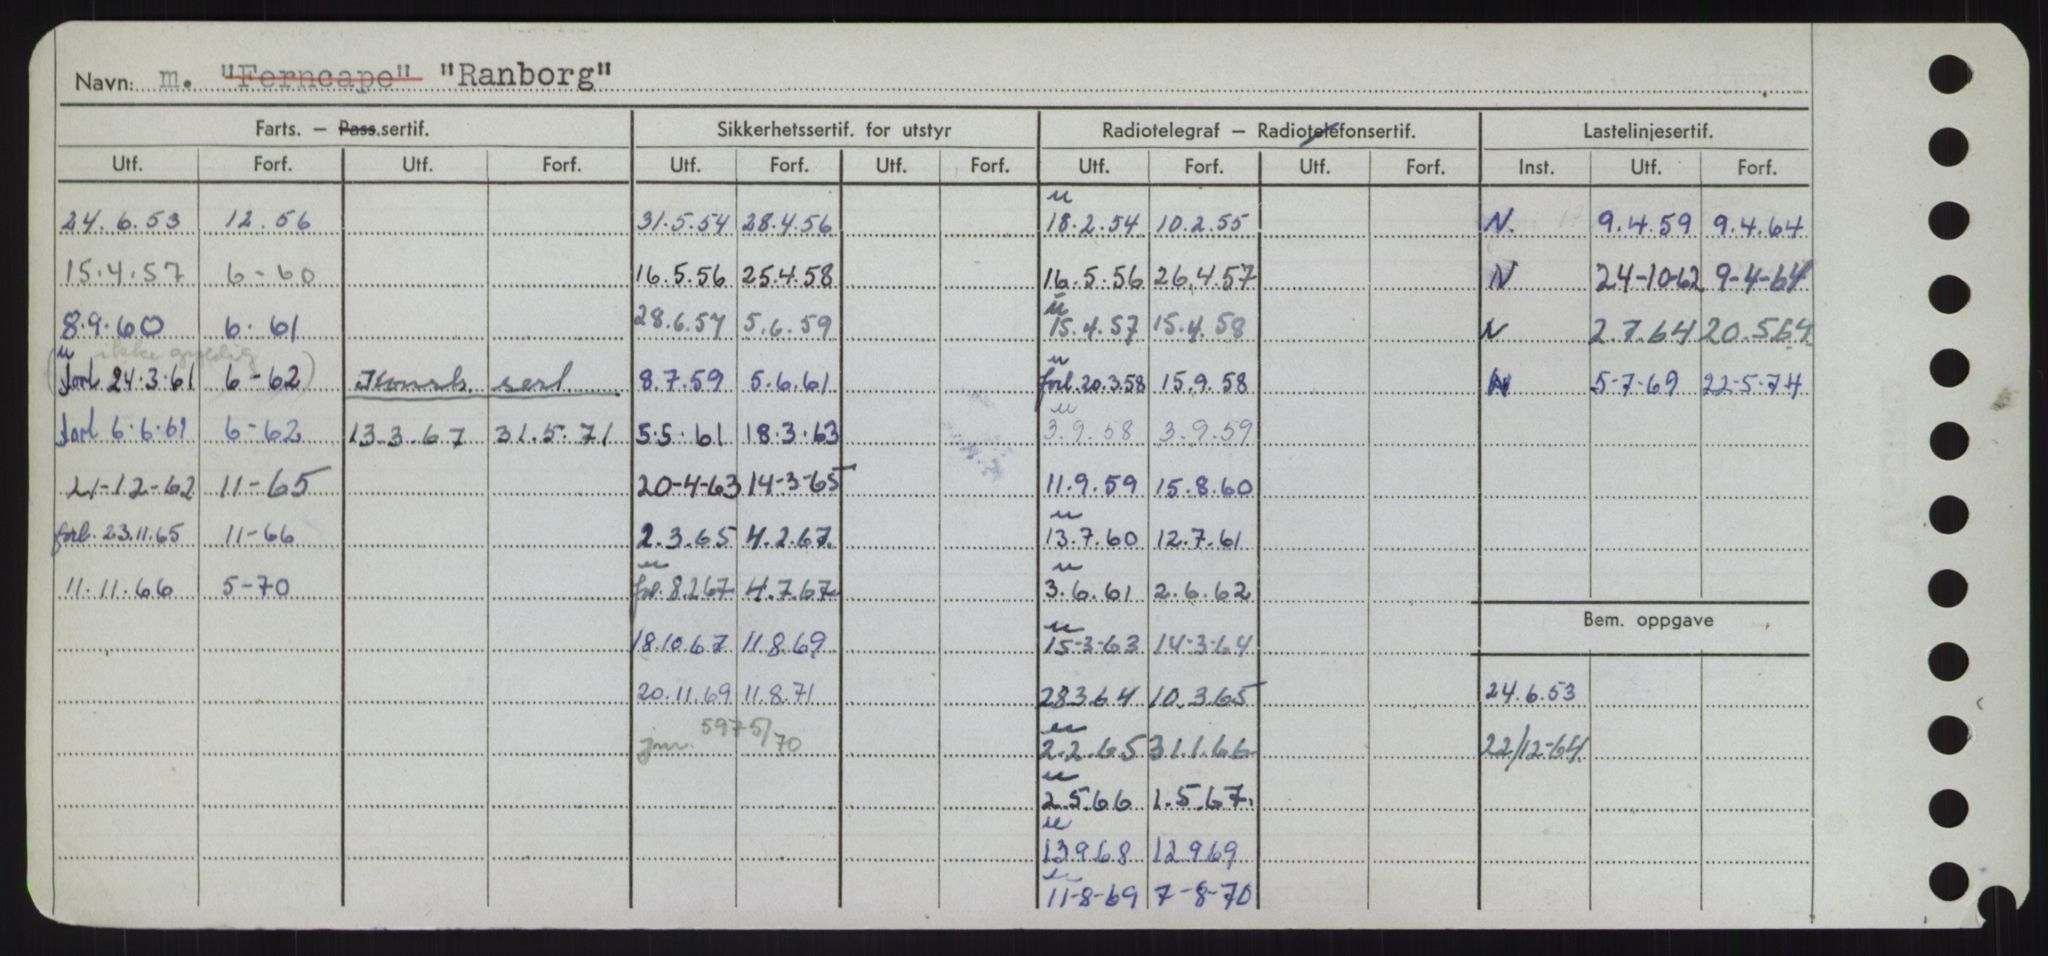 Navn: m. "Ferncape" "Ranborg"
Farts. — Pass.sertif. Sikkerhetssertif. for utstyr Radiotelegraf — Radiotelefonsertif. Lastelinjesertif.
Utf. Forf. Utf. Forf. Utf. Forf. Utf. Forf. Utf. Forf. Utf. Forf. Inst. Utf. Forf.
u
24.6.53 12.56 31.5.54 28.4.56 18.2.54 10.2.55 N. 9.4.59 9.4.64
15.4.57 6-60 16.5.56 25.4.58 16.5.56 26.4.57 N 24-10-62 9-4-64
u
8.9.60 6.61 28.6.57 5.6.59 15.4.57 15.4.58 N 2.7.64 20.5.64
u ikke gyldig u
(forl. 24.3.61 6-62) Konst. sert. 8.7.59 5.6.61 forl. 20.3.58 15.9.58 N 5-7-69 22-5-74
u
forl. 6.6.61 6-62 13.3.67 31.5.71 5.5.61 18.3.63 3.9.58 3.9.59
21-12-62 11-65 20-4-63 14-3-65 11.9.59 15.8.60
u
forl. 23.11.65 11-66 2.3.65 4.2.67. 13.7.60 12.7.61
u u
11.11.66 5-70 forl. 8.2.67 4.7.67 3.6.61 2.6.62
Bem. oppgave
u
18.10.67 11.8.69 15-3-63 14-3-64
20.11.69 11.8.71 28.3.64 10.3.65 24.6.53
u
jnr. 5975/70 2.2.65 31.1.66 22/12-64.
u
2.5.66 1.5.67.
u
13.9.68 12.9.69
u
11-8-69 7-8-70